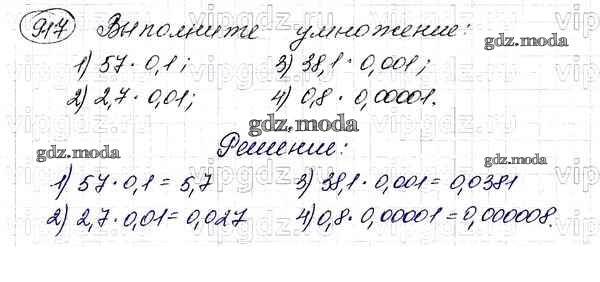 917 Выполните умножение:
1) 57 · 0,1; 3) 38,1 · 0,001;
2) 2,7 · 0,01; 4) 0,8 · 0,00001.
gdz.moda
gdz.moda
gdz.moda
Решение:
gdz.moda
gdz.moda
1) 57 · 0,1 = 5,7 3) 38,1 · 0,001 = 0,0381
2) 2,7 · 0,01 = 0,027 4) 0,8 · 0,00001 = 0,000008.